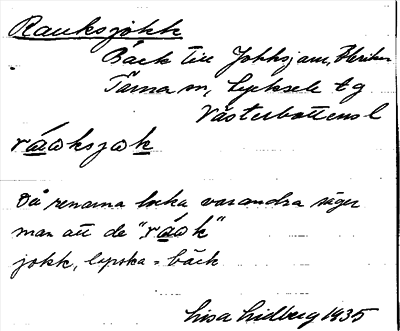 Rauksjokk
Bäck till Jokksjaur,
Tärna sn, Lycksele tg
Västerbottens l
ráωksjωk
Då renarna locka varandra säger
man att de "ráωk"
jokk, lapska = bäck
Lisa Lidberg 1935